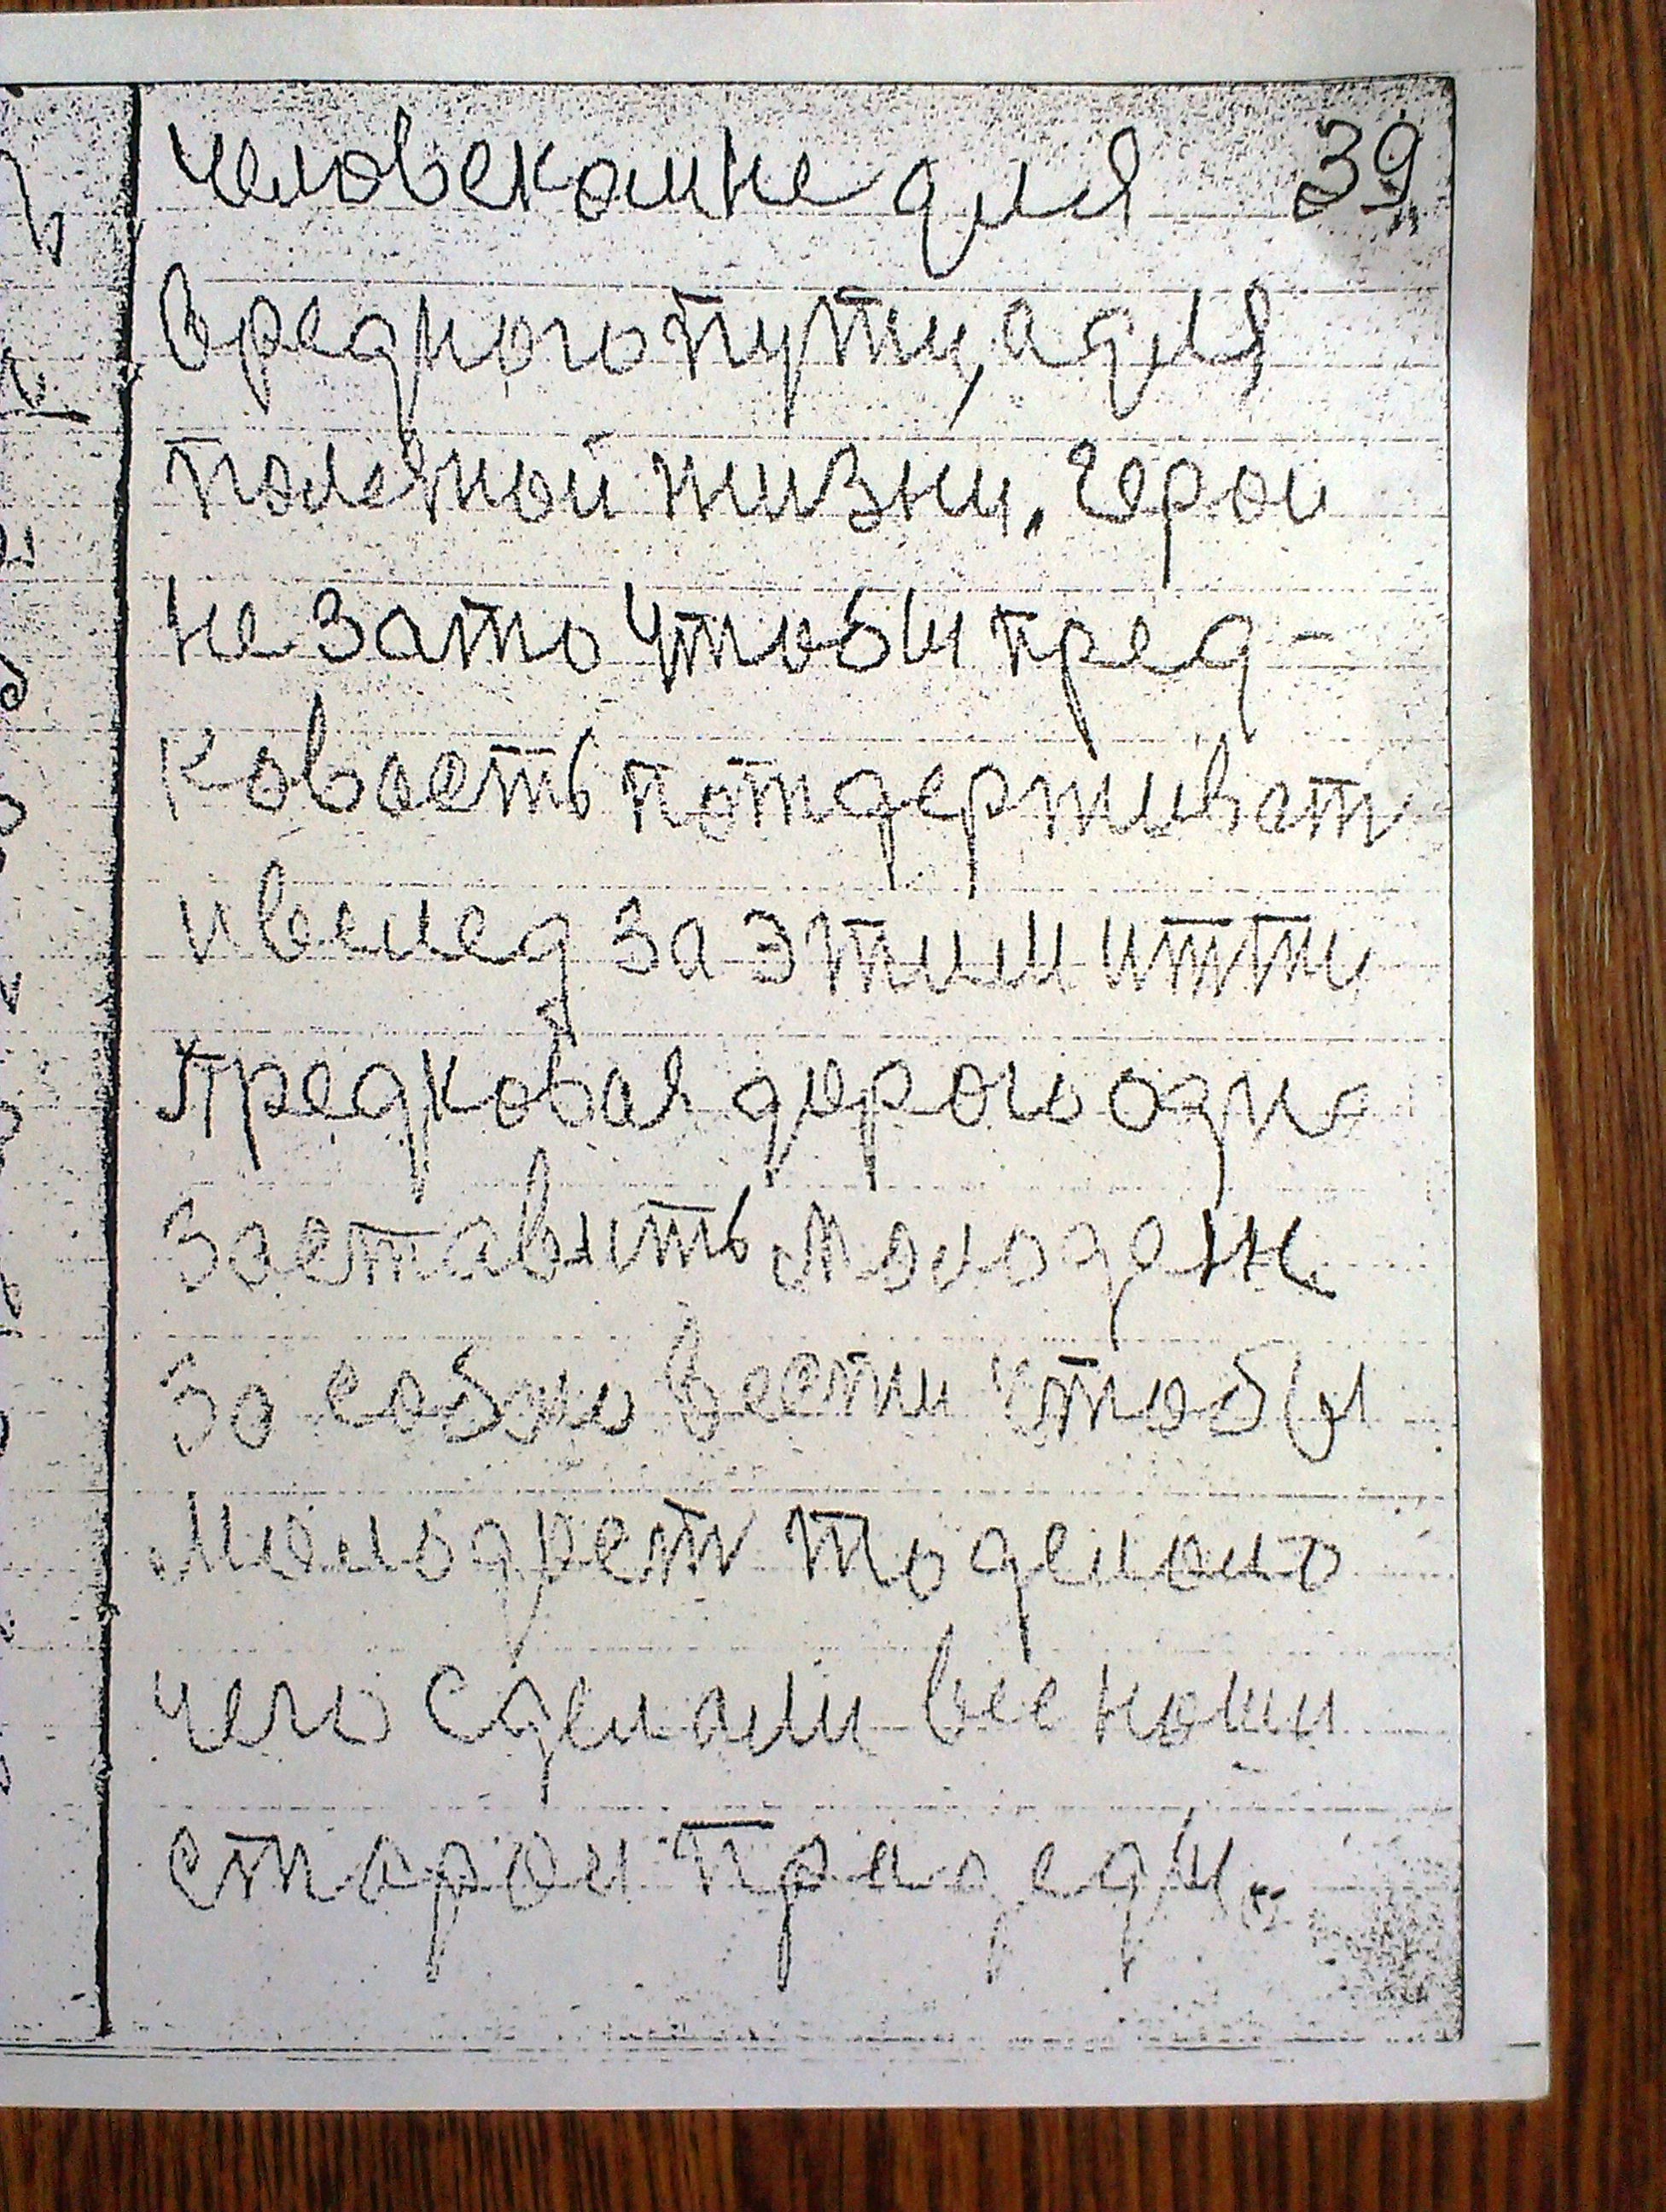 человекам не для 39
вредного пути, а для
полезной жизни. Герои
не зато чтобы пред-
ковость потдерживат
и вслед за этим итти
Предковая дорога одна
заставить молодежь
за собою вести чтобы
молодёжь то делало
чего сделали все наши
стараи прадеды.